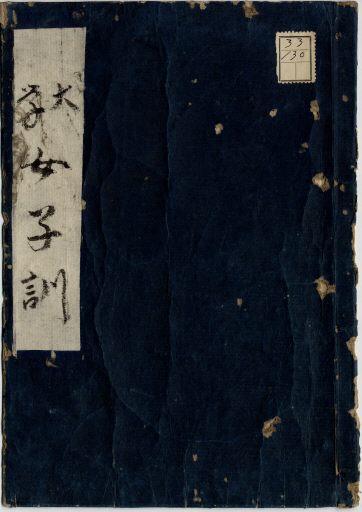 女子訓
33
130